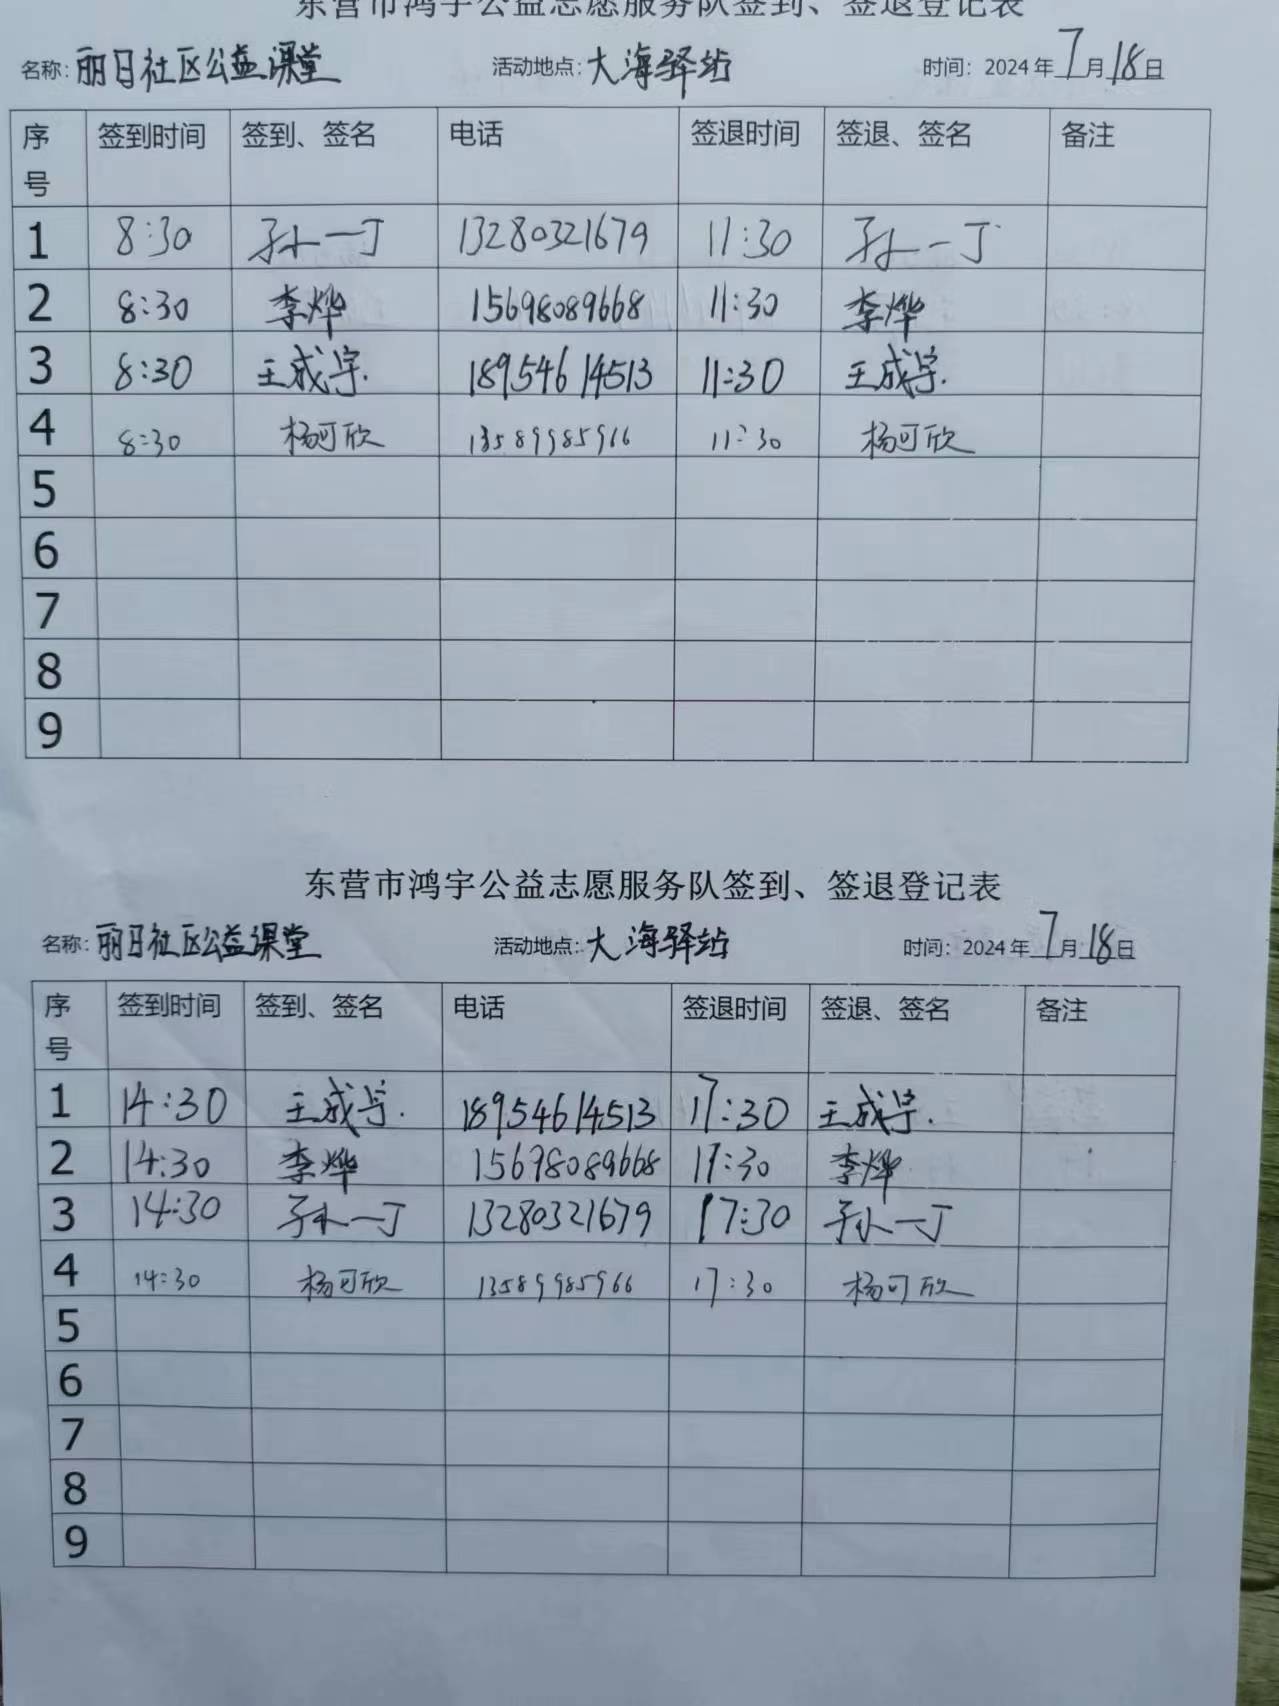 东营市鸿宇公益志愿服务队签到、签退登记表
名称：丽日社区公益课堂 活动地点：大海驿站 时间：2024年7月18日
序号 签到时间 签到、签名 电话 签退时间 签退、签名 备注
1 8:30 孙一丁 13280321679 11:30 孙一丁
2 8:30 李烨 15698089668 11:30 李烨
3 8:30 王成宇. 18954614513 11:30 王成宇.
4 8:30 杨可欣 13589985966 11:30 杨可欣
5
6
7
8
9
东营市鸿宇公益志愿服务队签到、签退登记表
名称：丽日社区公益课堂 活动地点：大海驿站 时间：2024年7月18日
序号 签到时间 签到、签名 电话 签退时间 签退、签名 备注
1 14:30 王成宇. 18954614513 17:30 王成宇.
2 14:30 李烨 15698089668 17:30 李烨
3 14:30 孙一丁 13280321679 17:30 孙一丁
4 14:30 杨可欣 13589985966 17:30 杨可欣
5
6
7
8
9